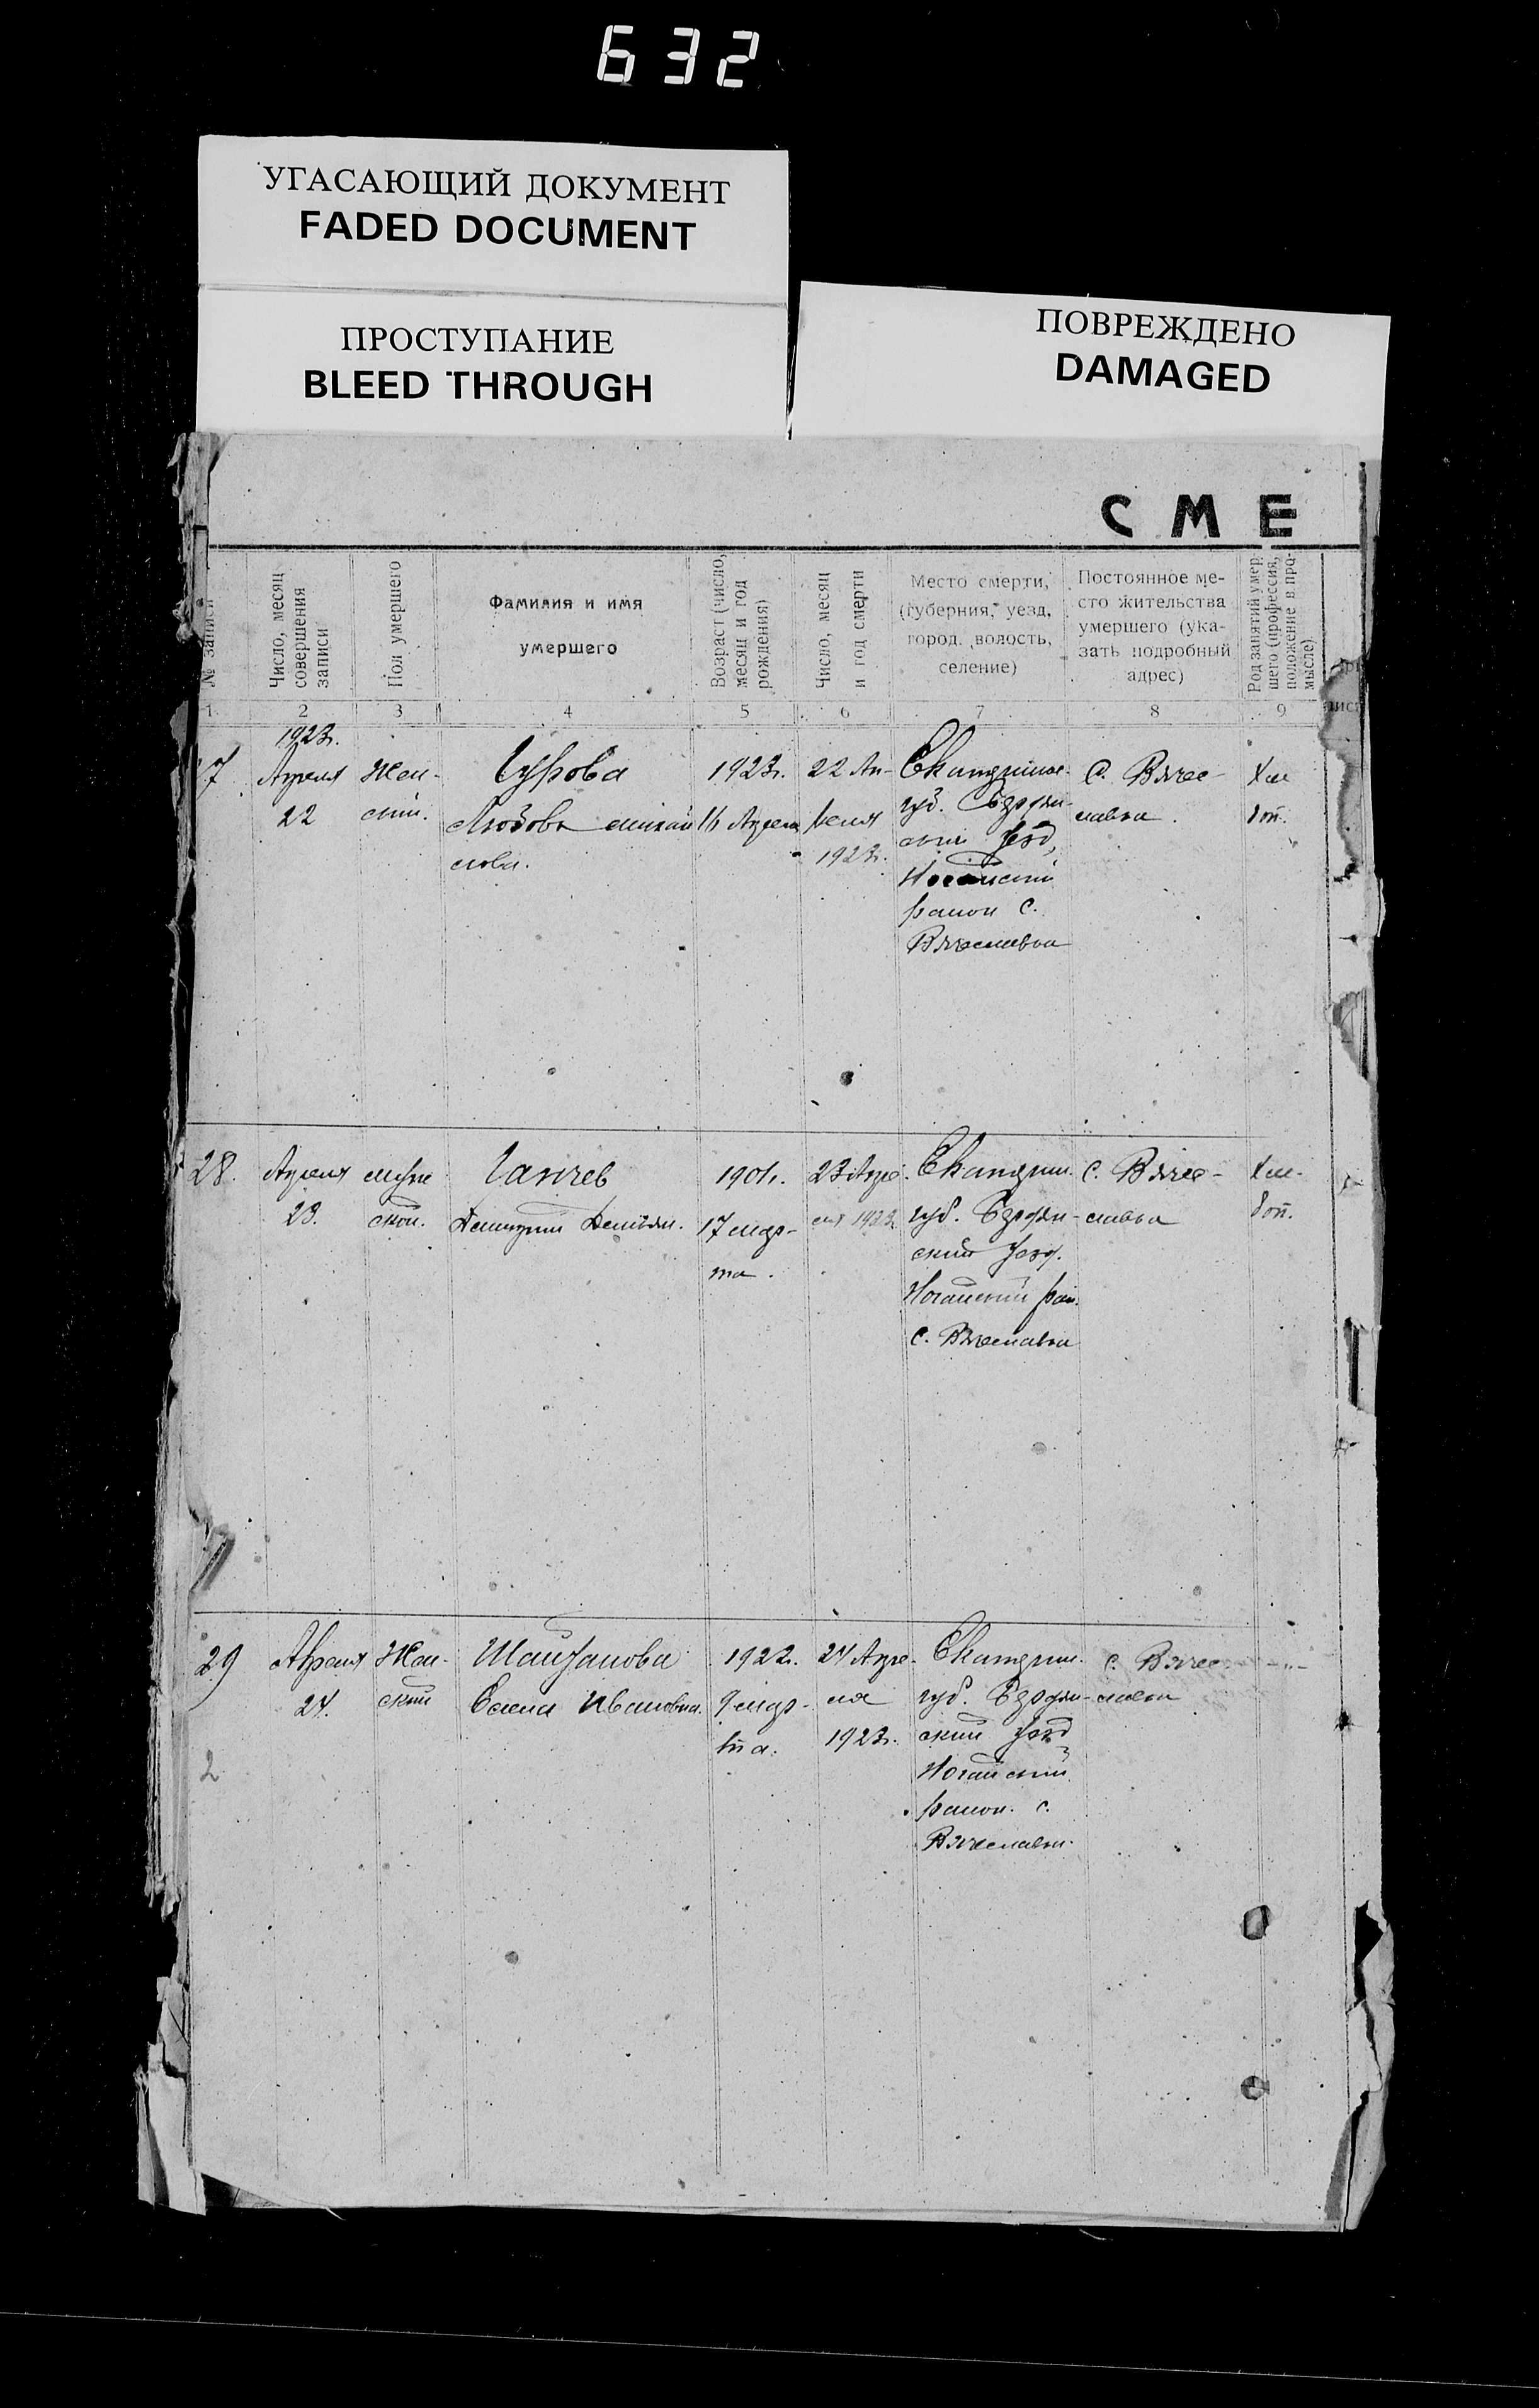 632
УГАСАЮЩИЙ ДОКУМЕНТ
FADED DOCUMENT
ПРОСТУПАНИЕ
BLEED THROUGH
ПОВРЕЖДЕНО
DAMAGED
СМЕ
№ записи
Число, месяц
совершения
записи
Пол умершего
Фамилия и имя
умершего
Возраст (число,
месяц и год
рождения)
Число, месяц
и год смерти
Место смерти,
(губерния, уезд,
город, волость,
селение)
Постоянное ме-
сто жительства
умершего (ука-
зать подробный
адрес)
Род занятий умер
шего (профессия,
положение в про-
мысле)
1 2 3 4 5 6 7 8 9
1923г.
7
Апреля
22
Жен-
ский.
Гурова
Любовь
1923г.
16 Апреля
22 Ап-
реля
1923г.
губ. Бердян-
ский уезд,
Ногайский
район с.
Вячеславка
с. Вячес-
лавка.
Хле
боп.
28.
Апреля
23.
муже
ской.
Ганчев
Демьян.
1901г.
17 мар-
та.
23 Апре-
ля 1923г.
Екатерин.
губ. Бердян-
ский уезд.
Ногайский рай.
с. Вячеславка
с. Вячес-
лавка
Хле-
боп.
29
Апреля
24.
Жен-
ский
Елена Ивановна.
1922г.
9 мар-
та.
24 Апре-
ля
1923г.
Екатерин.
губ. Бердян-
ский уезд
Ногайский
район. с.
Вячеславка.
с. Вячес-
лавка
-„-
2